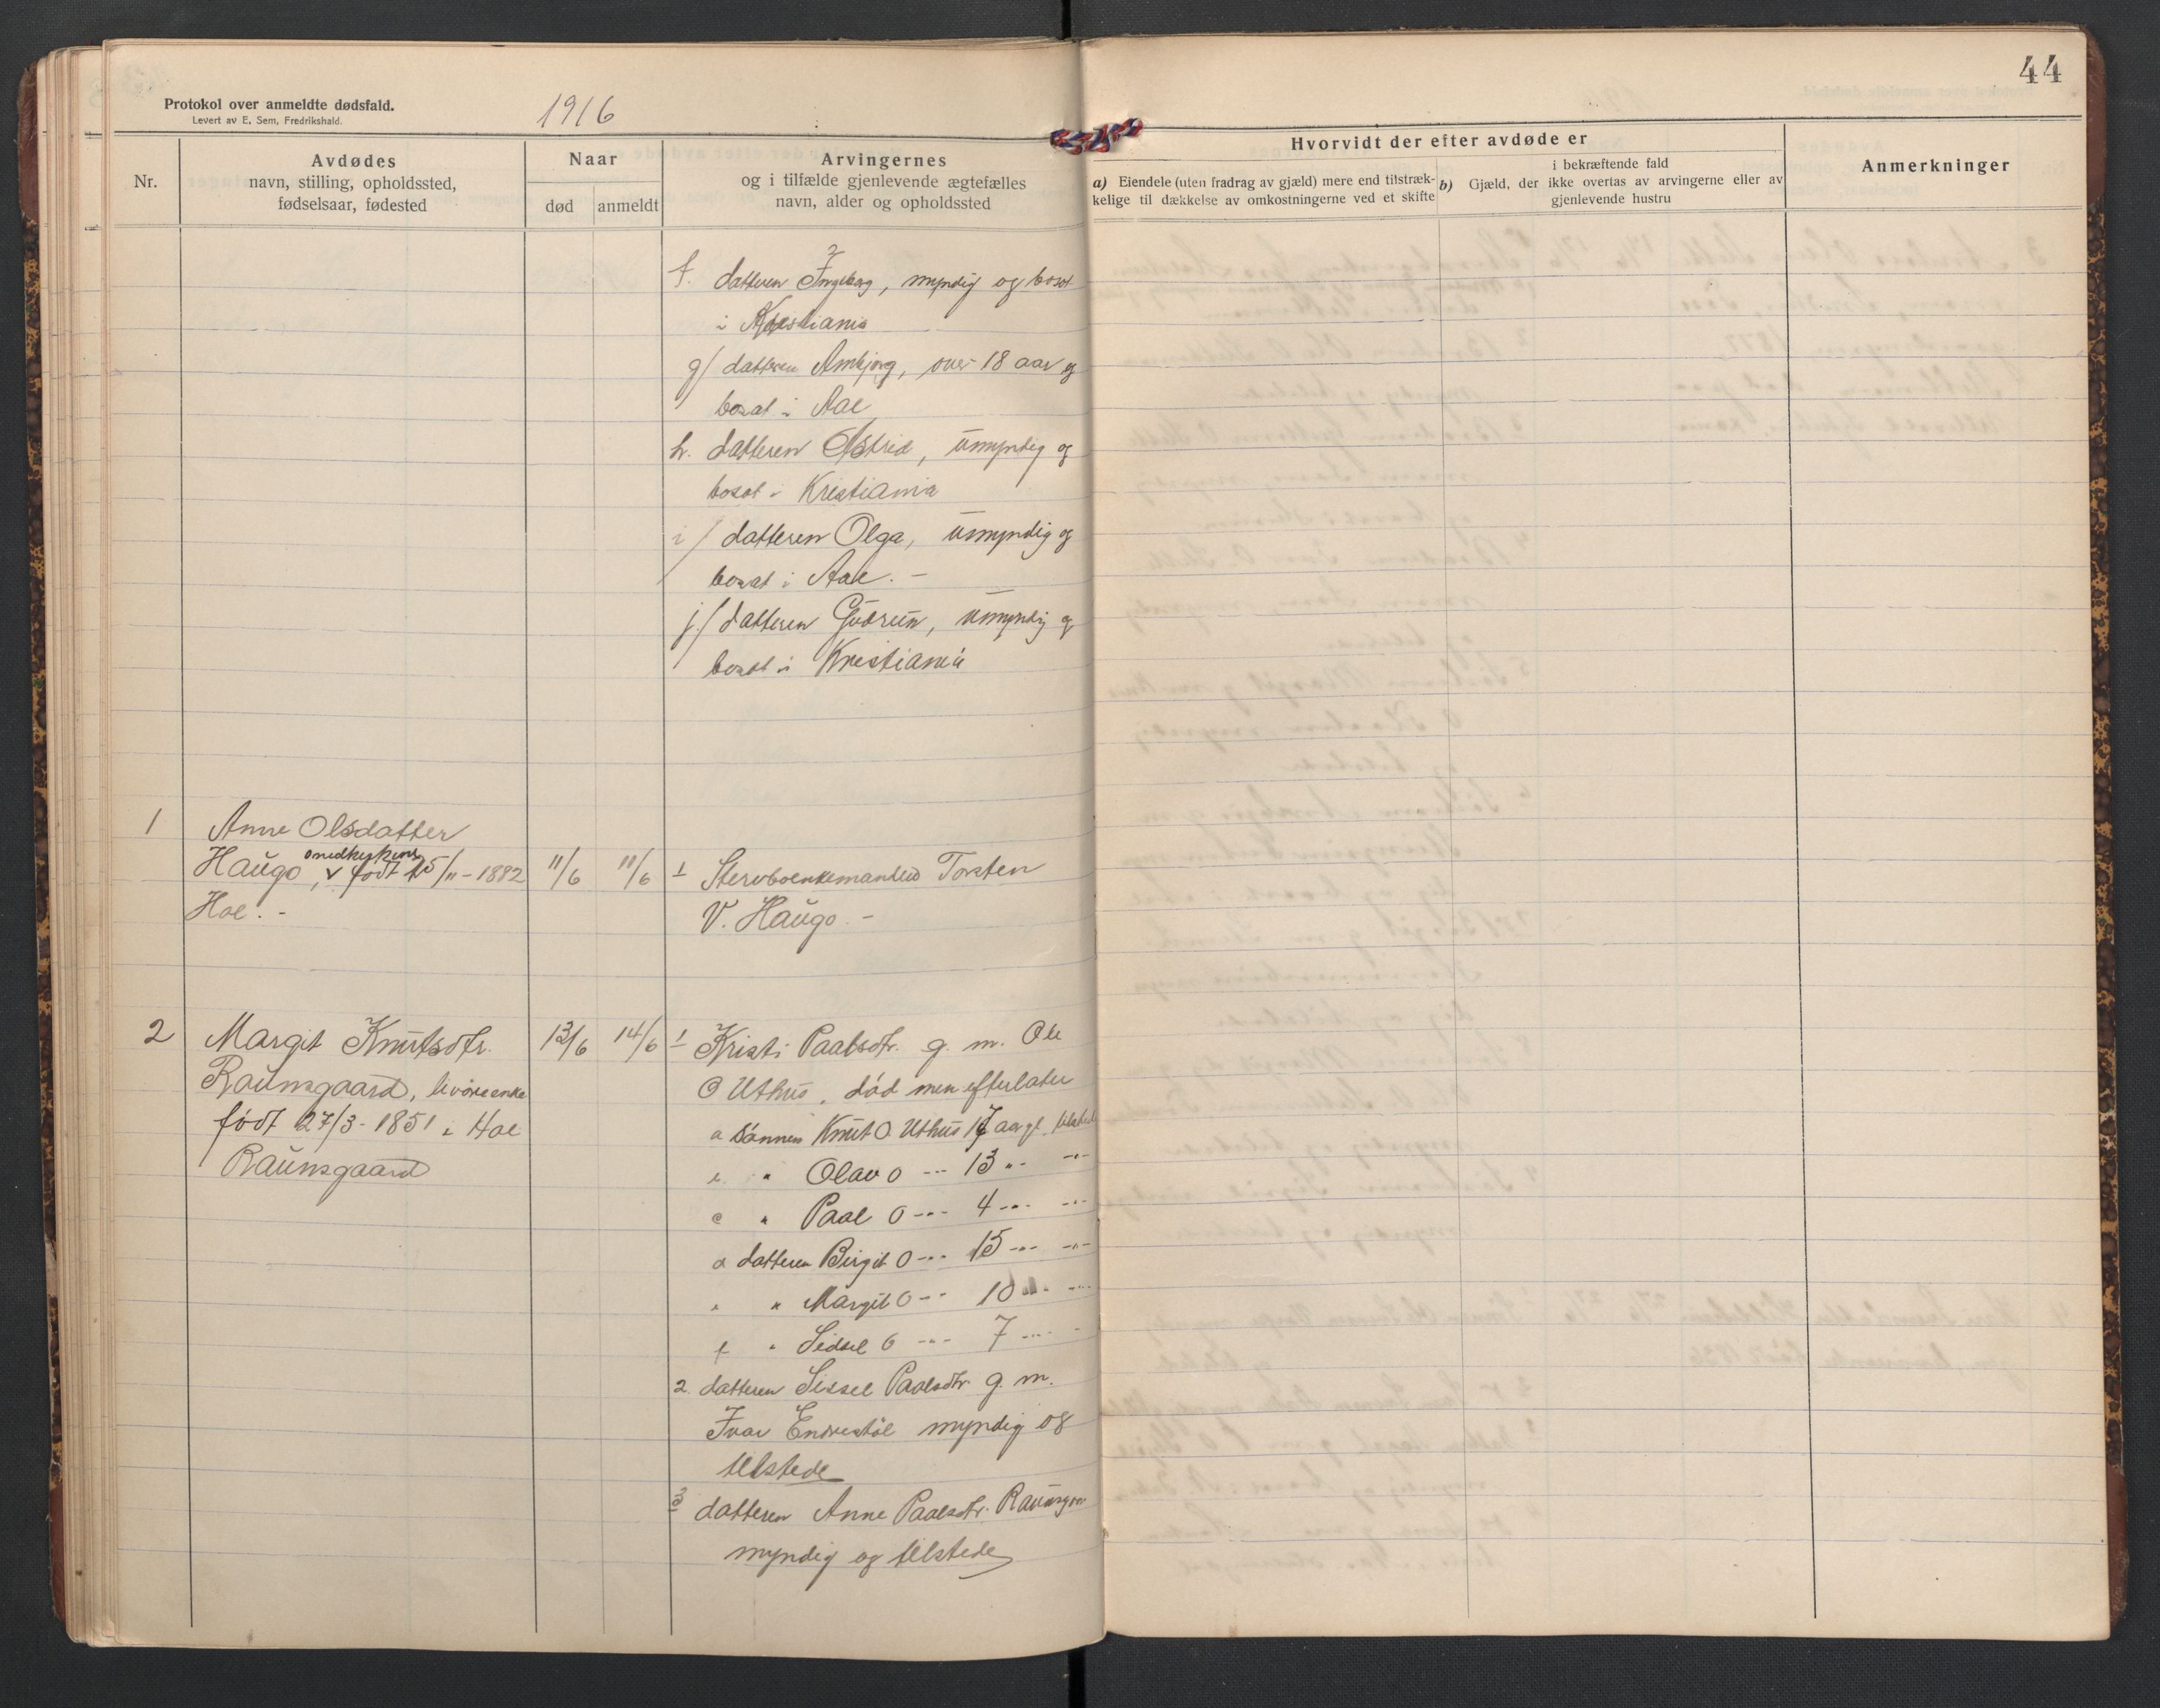 44
Protokol over anmeldte dødsfald.
Levert av E. Sem, Fredrikshald.
1916
Nr.
Avdødes
navn, stilling, opholdssted,
fødselsaar, fødested
Naar
død
anmeldt
Arvingernes
og i tilfælde gjenlevende ægtefælles
navn, alder og opholdssted
Hvorvidt der efter avdøde er
a) Eiendele (uten fradrag av gjæld) mere end tilstræk-
kelige til dækkelse av omkostningerne ved et skifte
i bekræftende fald
b) Gjæld, der ikke overtas av arvingerne eller av
gjenlevende hustru
Anmerkninger
f. datteren Ingeborg, myndig og bosat
i Kristiania
g/ datteren Ambjørg, over 18 aar og
bosat i Aal
h. datteren Astrid, umyndig og
bosat i Kristiania
i/ datteren Olga, umyndig og
bosat i Aal. -
j/ datteren Gudrun, umyndig og
bosat i Kristiania
1
Anne Olsdatter
Haugo, født 25/11 - 1882
Hol. -
11/6
11/6
1 Torsten
V. Haugo. -
2
Margit Knutsdtr.
Raunsgaard, livøreenke
født 27/3 - 1851 i Hol
Raunsgaard
13/6
14/6
1 Kristi Paalsdtr. g. m. Ole
O Uthus, død men efterlater
a sønnen Knut O. Uthus 17 aar gl. tilstede
" Olav O -"- 13 -"- -"-
c " Paal O -"- 4 -"- -"-
d datteren Birgit O -"- 15 -"- -"-
" Margit O -"- 10 -"- -"-
f " Sidsel O -"- 7 -"- -
2. datteren Sissel Paalsdtr g. m.
Ivar Endrestøl myndig og
tilstede
3 datteren Anne Paalsdtr. Raunsgaar
myndig og tilstede